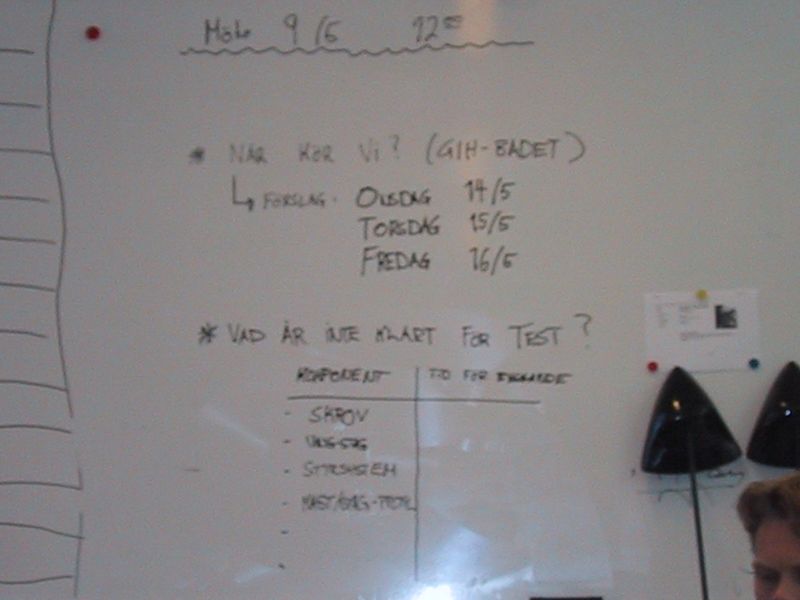 Möte 9/5 12⁰⁰
* NÄR KÖR VI? (GIH-BADET)
↳ FÖRSLAG. ONSDAG 14/5
TORSDAG 15/5
FREDAG 16/5
* VAD ÄR INTE KLART FÖR TEST?
KOMPONENT TID FÖR
- SKROV
-
- STYRSYSTEM
-
-
-